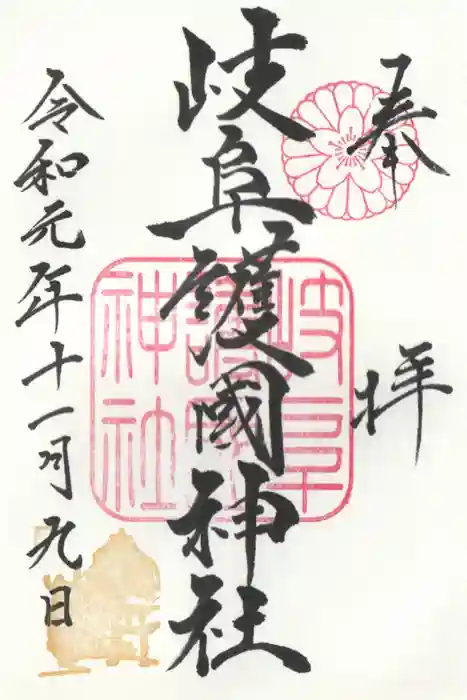 奉拝
岐阜護國神社
岐阜
護國
神社
令和元年十一月九日